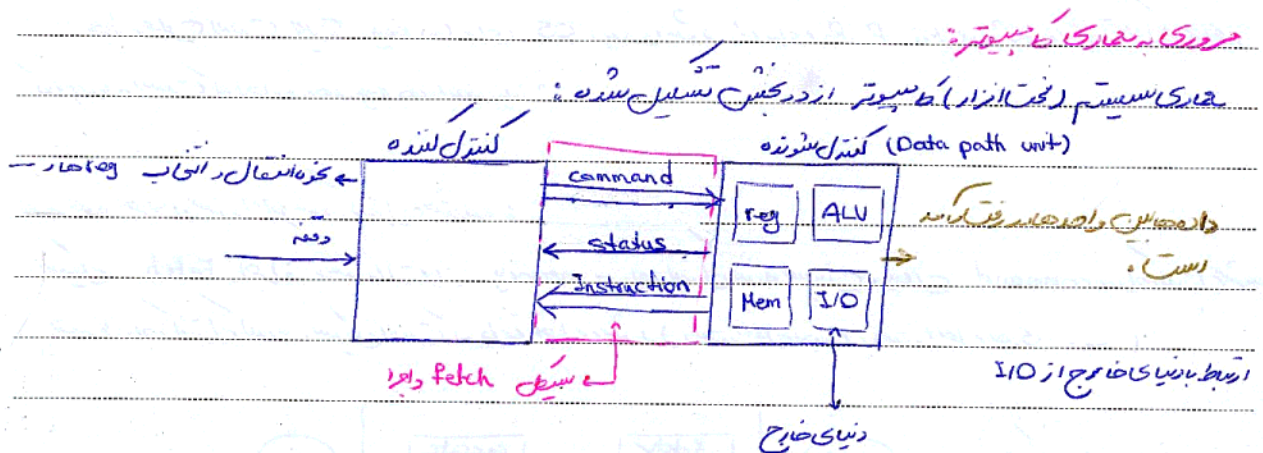 مروری به معماری کامپیوتر:
معماری سیستم (سخت‌افزار) کامپیوتر از دو بخش تشکیل شده:
کنترل شونده (Data path unit)
کنترل کننده
نحوه انتقال و انتخاب regها
وقفه
command
status
Instruction
reg
ALU
Mem
I/O
داده‌ها بین واحدها در رفت و آمد
است.
سیکل fetch و اجرا
ارتباط با دنیای خارج از I/O
دنیای خارج